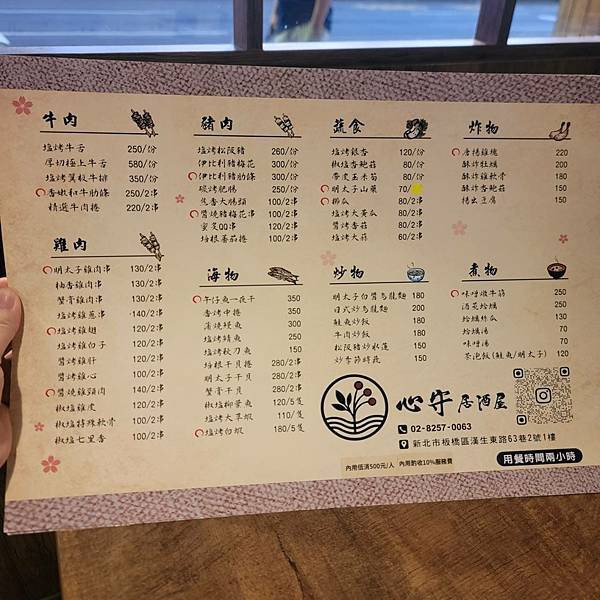 牛肉
塩烤牛舌 250/份
厚切極上牛舌 580/份
塩烤翼板牛排 350/份
香嫩和牛肋條 250/2串
精選牛肉捲 220/2串
雞肉
明太子雞肉串 130/2串
柚香雞肉串 130/2串
蟹膏雞肉串 130/2串
塩烤雞蔥串 140/2串
塩烤雞翅 120/2串
塩烤雞白子 120/2串
醬烤雞肝 120/2串
醬烤雞心 100/2串
醬烤雞頸肉 140/2串
椒塩雞皮 120/2串
椒塩特殊軟骨 100/2串
椒塩七里香 100/2串
豬肉
塩烤松阪豬 260/份
伊比利豬梅花 300/份
伊比利豬肋條 300/份
碳烤肥腸 250/份
炙香大腸頭 100/2串
醬燒豬梅花串 100/2串
蜜炙QQ串 120/2串
培根蕃茄捲 100/2串
海物
午仔魚一夜干 350
香烤中捲 350
蒲燒鰻魚 300
塩烤鯖魚 250
塩烤秋刀魚 150
培根干貝捲 280/2串
明太子干貝 280/2串
蟹膏干貝 280/2串
椒塩柳葉魚 120/5隻
塩烤大草蝦 110/隻
塩烤白蝦 180/5隻
蔬食
塩烤銀杏 120/份
椒塩杏鮑菇 80/份
帶皮玉米筍 80/份
明太子山藥 70/
櫛瓜 80/2串
塩烤大黃瓜 80/2串
醬烤香菇 80/2串
塩烤大蒜 60/2串
炒物
明太子白醬烏龍麵 180
日式炒烏龍麵 200
鮭魚炒飯 180
牛肉炒飯 180
松阪豬炒水蓮 180
炒季節時蔬 150
炸物
唐揚雞塊 220
酥炸牡蠣 200
酥炸雞軟骨 180
酥炸杏鮑菇 150
揚出豆腐 150
煮物
味噌燉牛筋 250
酒蒸蛤蠣 250
蛤蠣絲瓜 130
蛤蠣湯 70
味噌湯 70
茶泡飯(鮭魚/明太子) 120
心守居酒屋
02-8257-0063
新北市板橋區漢生東路63巷2號1樓
內用低消500元/人 內用酌收10%服務費
用餐時間兩小時